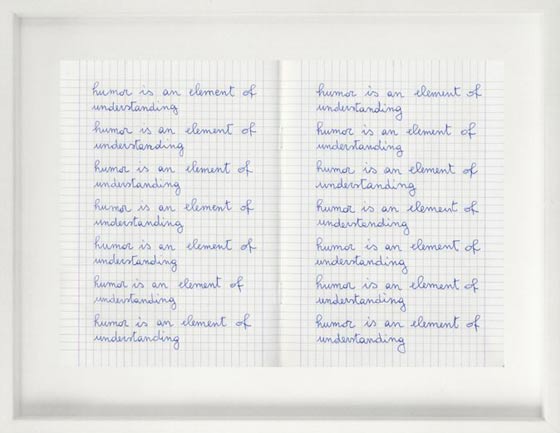 humor is an element of
understanding
humor is an element of
understanding
humor is an element of
understanding
humor is an element of
understanding
humor is an element of
understanding
humor is an element of
understanding
humor is an element of
understanding
humor is an element of
understanding
humor is an element of
understanding
humor is an element of
understanding
humor is an element of
understanding
humor is an element of
understanding
humor is an element of
understanding
humor is an element of
understanding